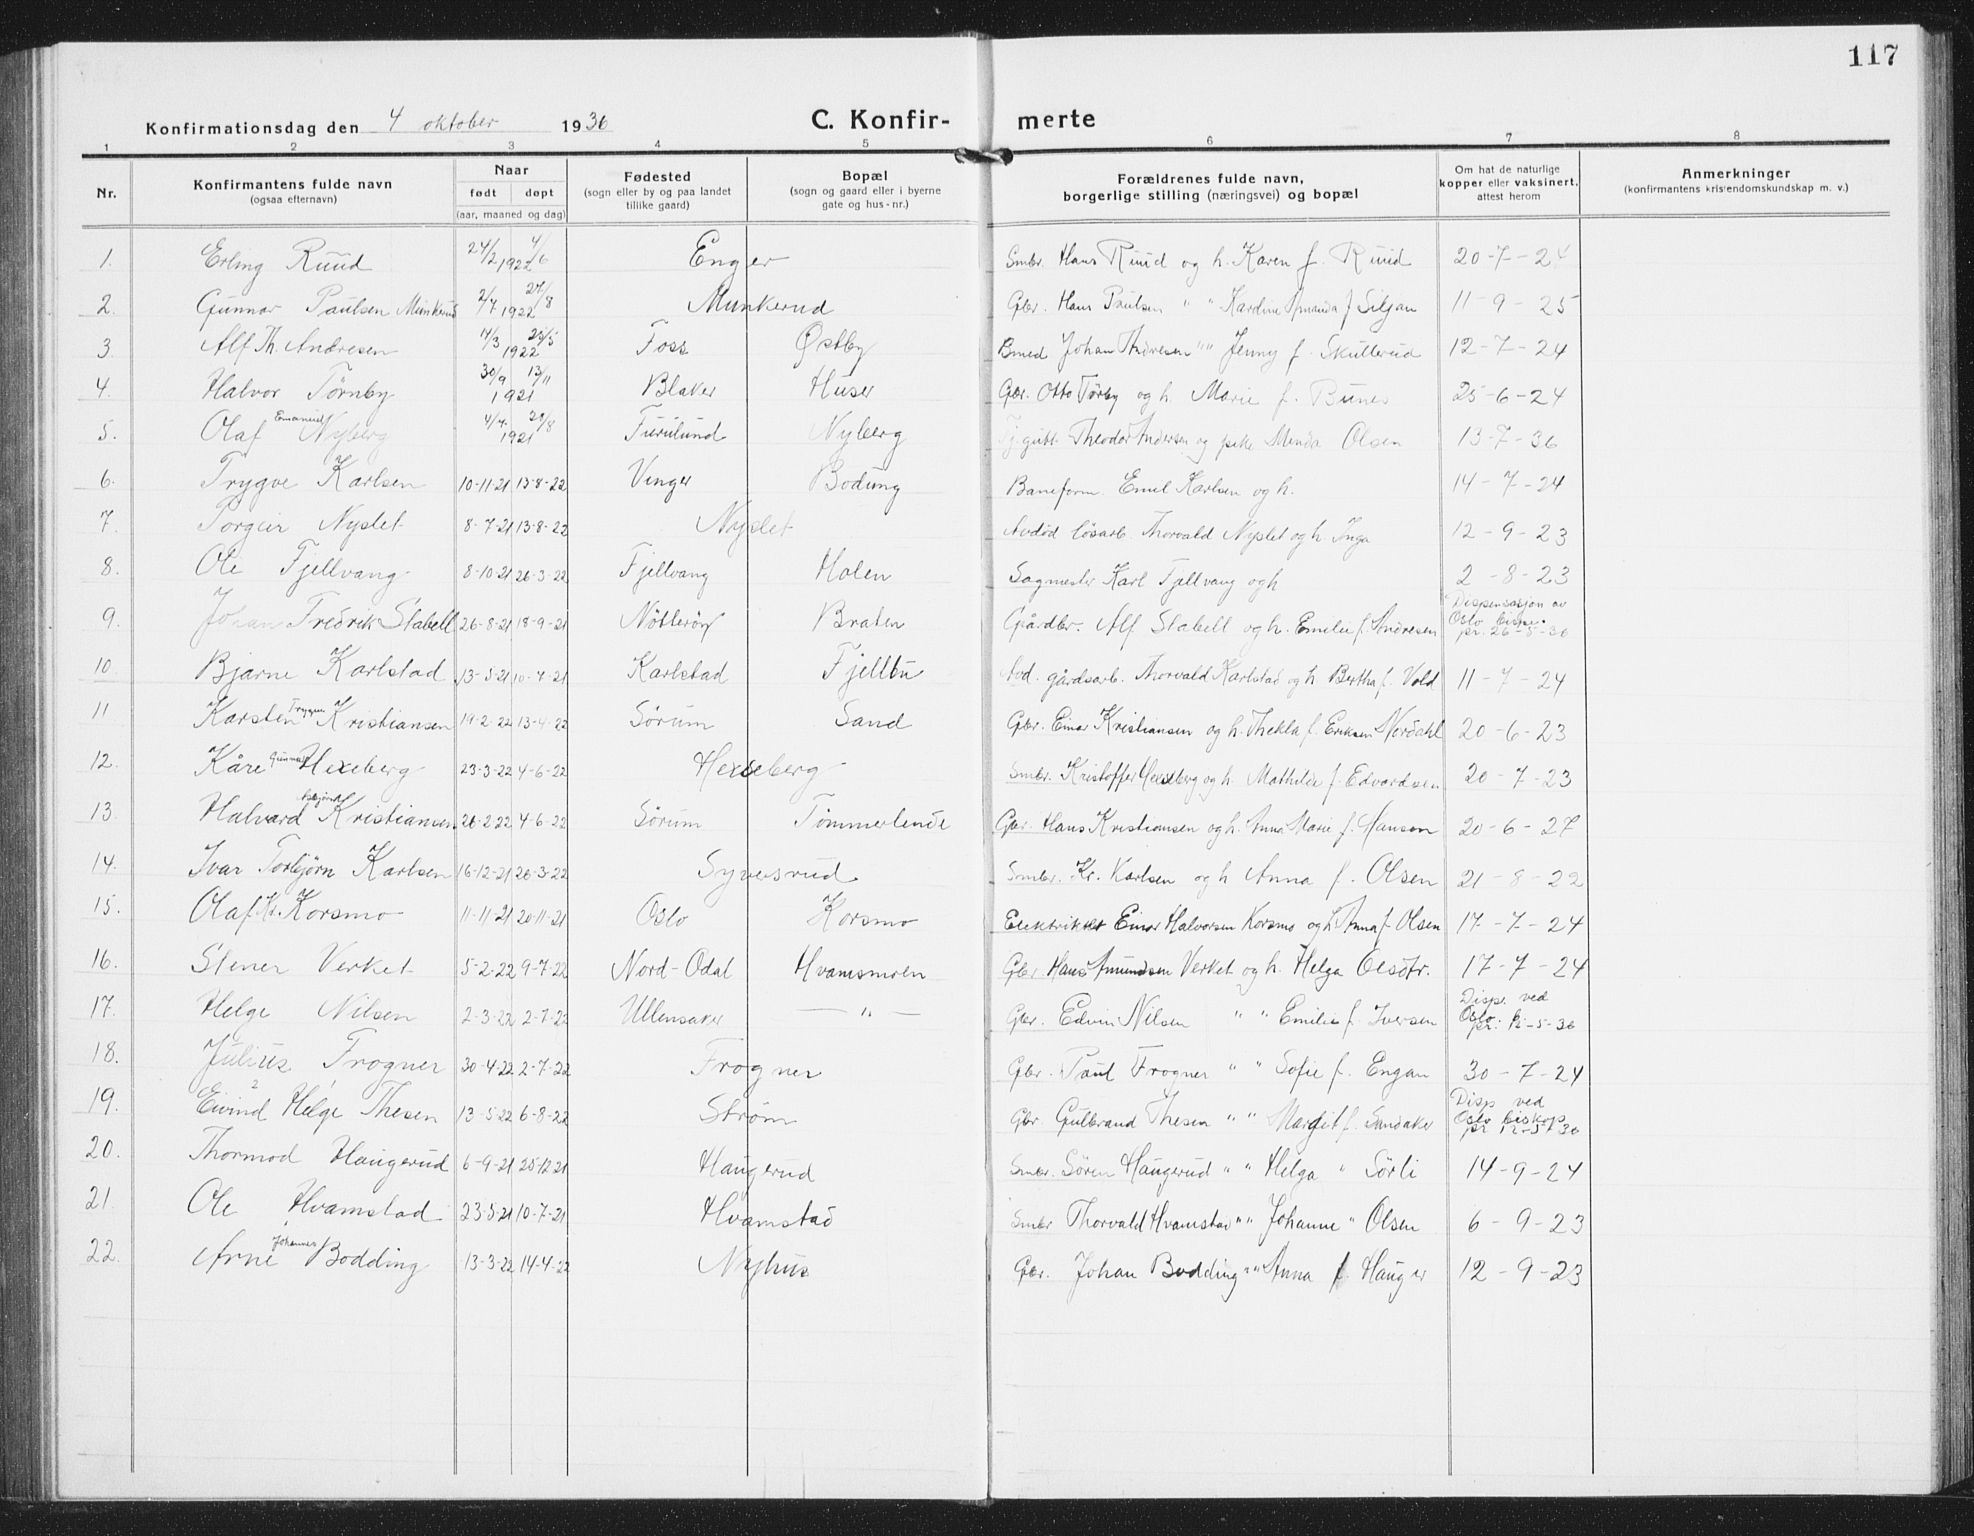 117
Konfirmationsdag den 4 oktober 1936 C. Konfir- merte
1 2 3 4 5 6 7 8
Nr. Konfirmantens fulde navn (ogsaa efternavn) Naar født døpt (aar, maaned og dag) Fødested (sogn eller by og paa landet tillike gaard) Bopæl (sogn og gaard eller i byerne gate og hus-nr.) Forældrenes fulde navn, borgerlige stilling (næringsvei) og bopæl Om hat de naturlige kopper eller vaksinert, attest herom Anmerkninger (konfirmantens kristendomskundskap m. v.)
1. Erling Ruud 24/2 1922 4/6 Enger Smbr. Hans Ruud og h. Karen f. Ruud 20-7-24
2. Gunnar Paulsen Munkerud 2/7 1922 27/8 Munkerud Gbr. Hans Paulsen " " Kardine Amanda f. Siljan 11-9-25
3. Alf Th. Andresen 14/3 1922 25/5 Foss Østby Bmed Johan Andresen " " Jenny f. Skullerud 12-7-24
4. Halvor Tørnby 30/9 1921 13/11 Blaker Huser Gbr. Otto Tørby og h. Marie f. Bunes 25-6-24
5. Olaf Emanuel Nyberg 4/7 1921 28/8 Furulund Nyberg Tj.gutt Theodor Andersen og pike Menda Olsen 13-7-36
6. Trygve Karlsen 10-11-21 13-8-22 Vinger Bodung Baneform. Emil Karlsen og h. 14-7-24
7. Torgeir Nyslet 8-7-21 13-8-22 Nyslet Avdød løsarb. Thorvald Nyslet og h. Inga 12-9-23
8. Ole Fjellvang 8-10-21 26-3-22 Fjellvang Holen Sagmester Karl Fjellvang og h 2-8-23
9. Johan Fredrik Stabell 26-8-21 18-9-21 Nötteröy Braten Gårdbr. Alf Stabell og h. Emilie f. Andresen Dispensasjon av Oslo bispe. pr. 26-5-36
10. Bjarne Karlstad 13-5-21 10-7-21 Karlstad Fjellbu Avd. gårdsarb. Thorvald Karlstad og h Bertha f. Vold 11-7-24
11 Karsten Trygve Kristiansen 19-2-22 13-4-22 Sørum Sand Gbr. Einar Kristiansen og h. Thekla f. Eriksen Nordahl 20-6-23
12. Kåre Gunnar Hexeberg 23-3-22 4-6-22 Hexeberg Smbr. Kristoffer Hexeberg og h. Mathilde f. Edvardsen 20-7-23
13. Halvard Kristiansen 26-2-22 4-6-22 Sörum Tömmerlende Gbr. Hans Kristiansen og h. Anna Marie f. Hanson 20-6-27
14. Ivar Torbjørn Karlsen 16-12-21 26-3-22 Syversrud Smbr. Kr. Karlsen og h Anna f. Olsen 21-8-22
15. Olaf Kr. Korsmo 11-11-21 20-11-21 Oslo Korsmo Elektriker Einar Halvorsen Korsmo og h. Anna f. Olsen 17-7-24
16. Stener Verket 5-2-22 9-7-22 Nord-Odal Hvamsmoen Gbr. Hans Amundsen Verket og h. Helga Olsdtr. 17-7-24
17. Helge Nilsen 2-3-22 2-7-22 Ullensaker — " — Gbr. Edvin Nilsen " " Emilie f. Iversen Disp. ved Oslo pr. 12-5-36
18. Julius Frogner 30-4-22 2-7-22 Frogner Gbr. Paul Frogner " " Sofie f. Engan 30-7-24
19. Eivind Helge Thesen 13-5-22 6-8-22 Strøm Gbr Gulbrand Thesen " " Margit f. Sandaker Disp ved Oslo biskop pr 12-5-36
20. Thormod Haugerud 6-9-21 25-12-21 Haugerud Smbr. Sören Haugerud " " Helga " Sörli 14-9-24
21. Ole Hvamstad 23-5-21 10-7-21 Hvamstad Smbr Thorvald Hvamstad " " Johanne " Olsen 6-9-23
22. Arne Johannes Bodding 13-3-22 14-4-22 Nyhus Gbr. Johan Bodding " " Anna f. Hauger 12-9-23